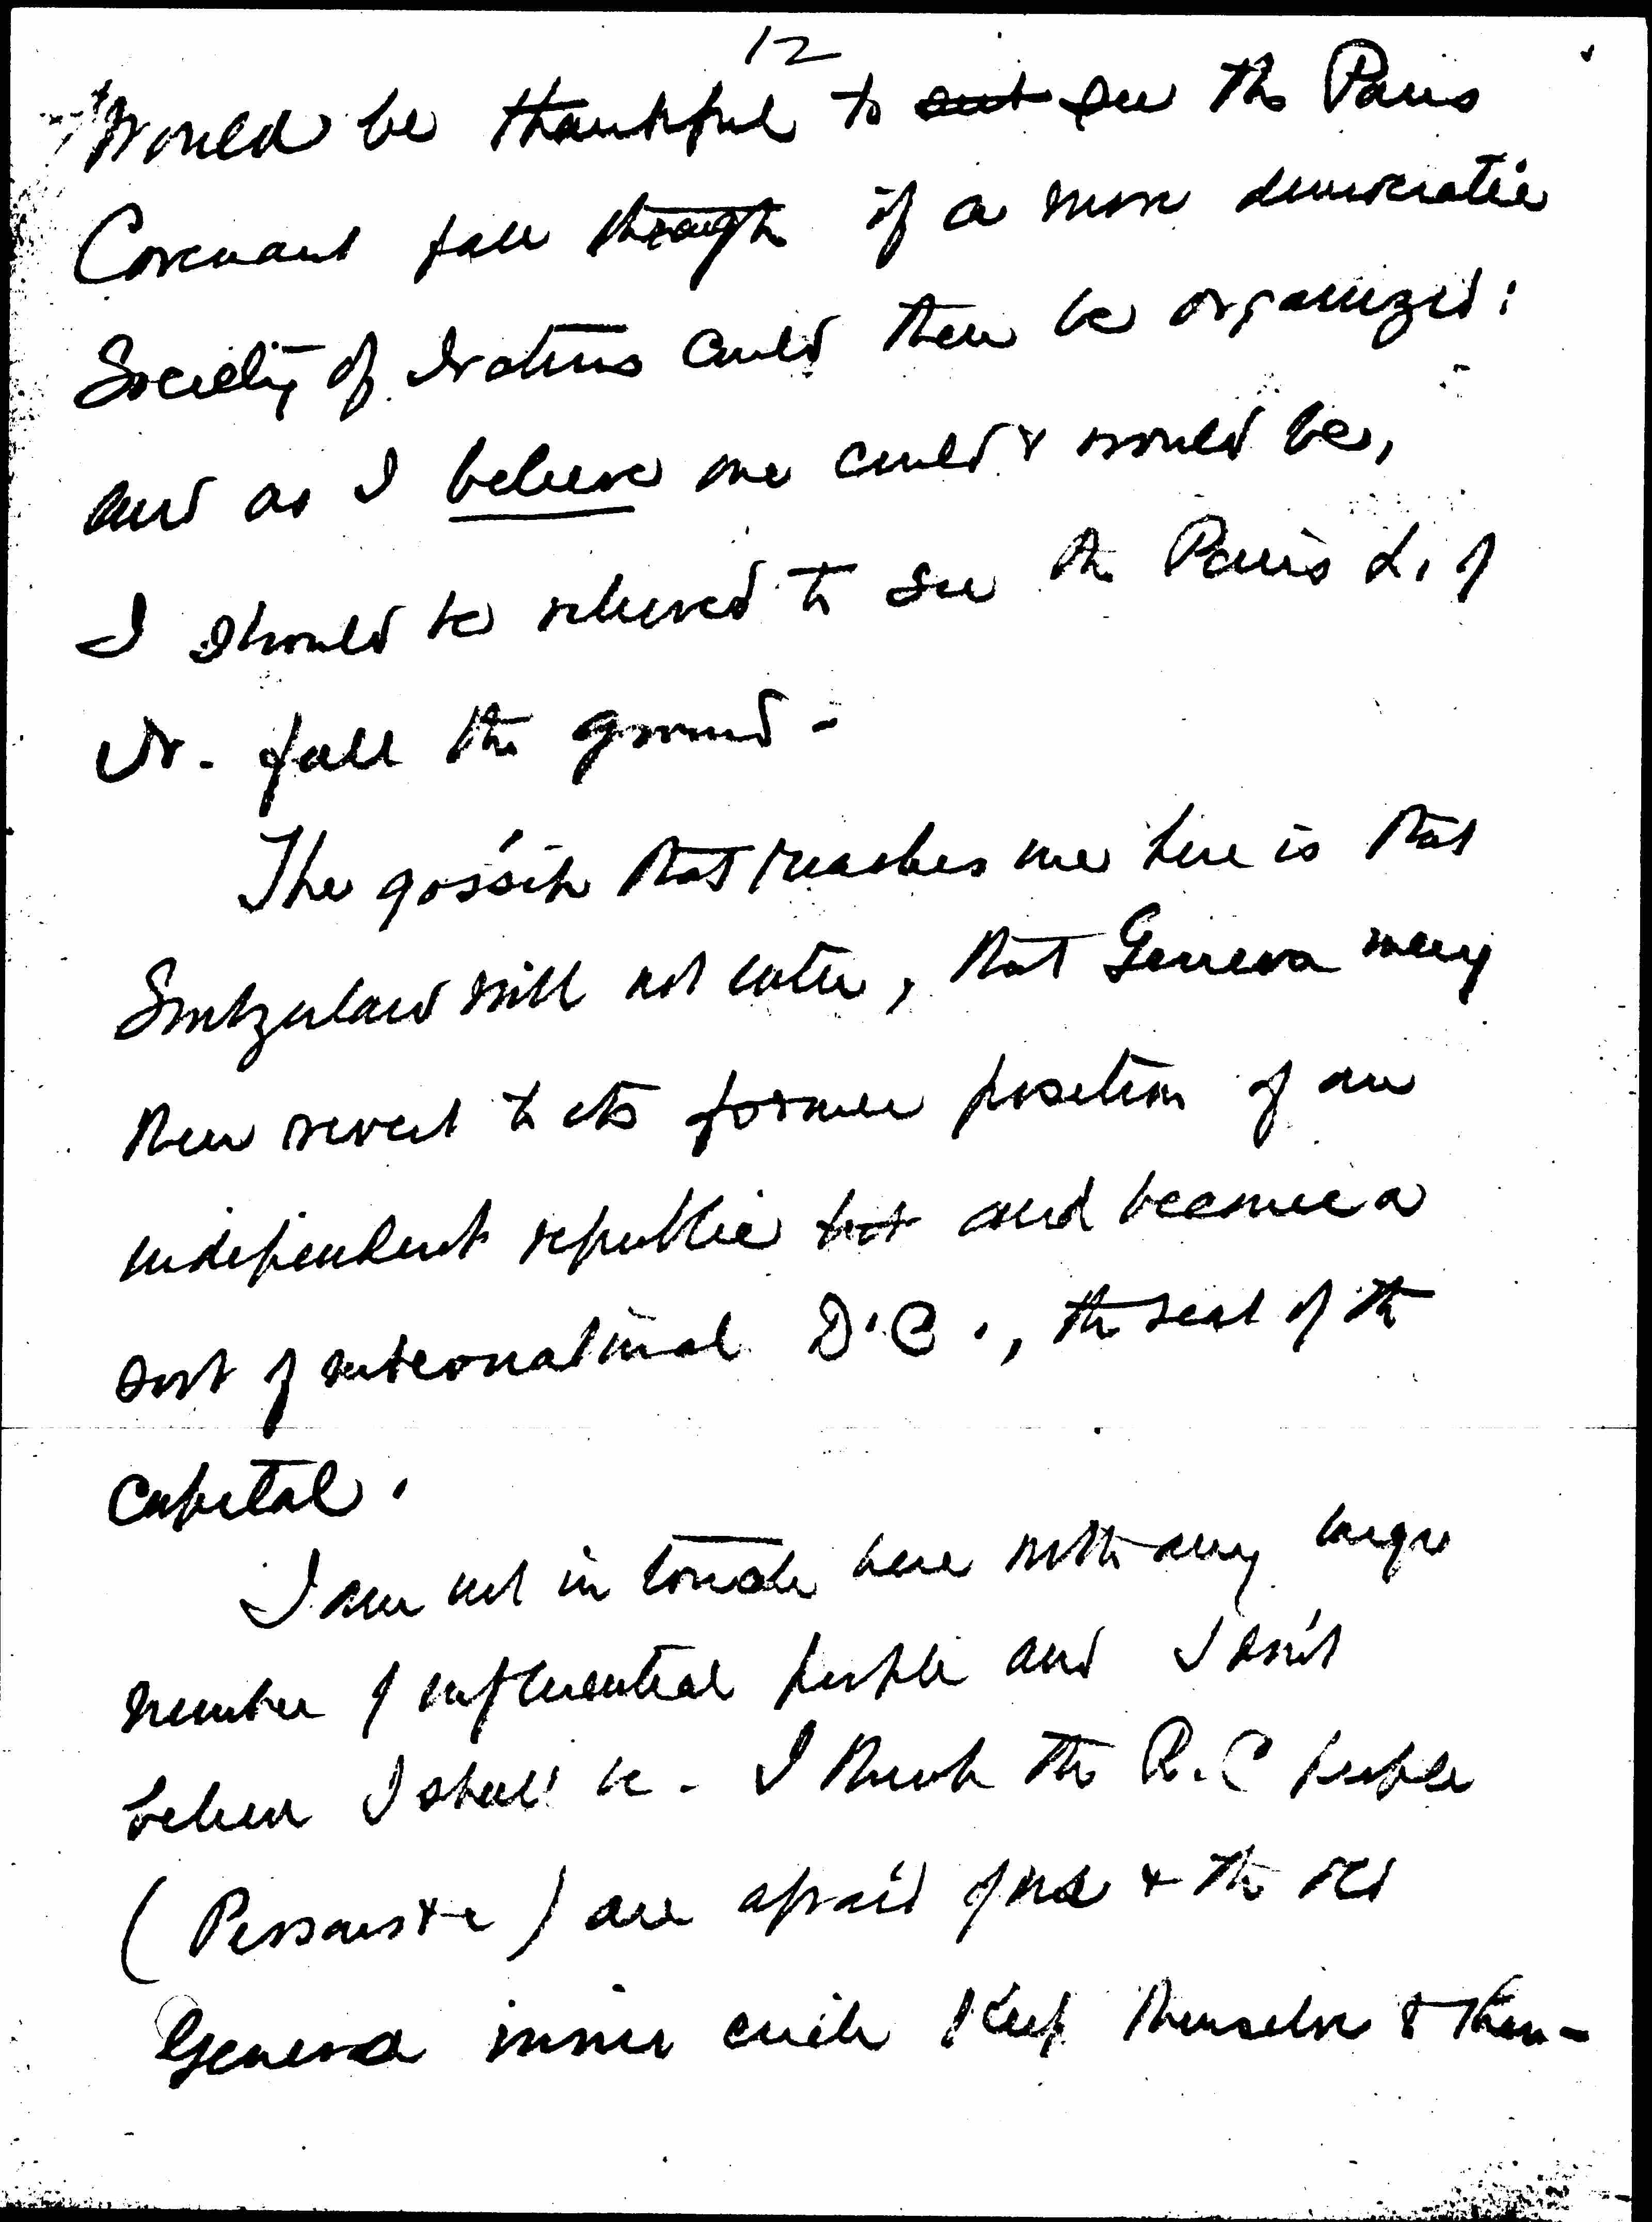 12
would be thankful to see the Paris
Covenant fall through if a more democratic
Society of Nations could then be organized:
and as I believe one could & would be,
I should be relieved to see the Paris L. of
N. fall the ground -
The gossip that reaches me here is that
Switzerland will not enter, that Geneva may
then revert to its former position of an
independent republic but and become a
sort of international D.C., the seat of the
Capital.
I am not in touch here with any large
number of influential people and I don't
believe I shall be. I think the R.C people
( ) are afraid of me & the old
Geneva inner circle keep themselves to them-